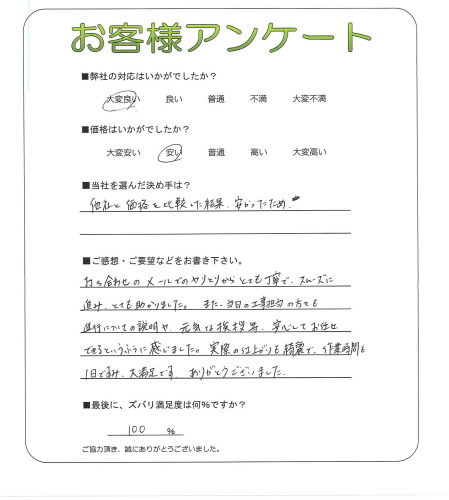 お客様アンケート
■弊社の対応はいかがでしたか？
大変良い 良い 普通 不満 大変不満
■価格はいかがでしたか？
大変安い 安い 普通 高い 大変高い
■当社を選んだ決め手は？
他社と価格を比較した結果、安かったため。
■ご感想・ご要望などをお書き下さい。
打ち合わせのメールでのやりとりからとても丁寧で、スムーズに
進み、とても助かりました。また、当日の工事担当の方も
進行についての説明や、元気な挨拶等、安心してお任せ
できるというふうに感じました。実際の仕上がりも綺麗で、作業時間も
1日ですみ、大満足です ありがとうございました。
■最後に、ズバリ満足度は何%ですか？
100 %
ご協力頂き、誠にありがとうございました。